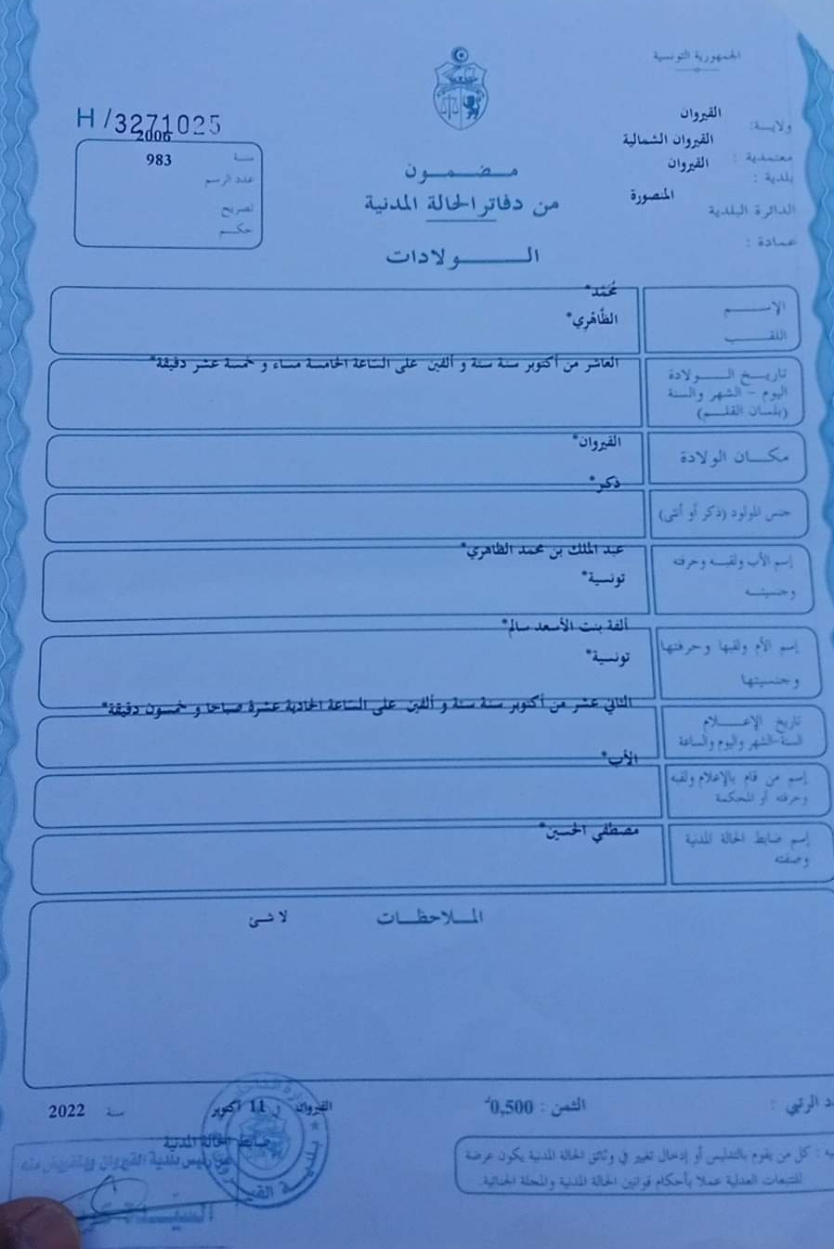 الجمهورية التونسية
ولاية: القيروان
معتمدية: القيروان الشمالية
بلدية: القيروان
الدائرة البلدية المنصورة
عمادة:
H/3271025
2006
سنة
983
عدد الرسم
تصريح
حكم
مضمون
من دفاتر الحالة المدنية
الولادات
الإسم
محمد*
اللقب
الظاهري*
تاريخ الولادة
اليوم - الشهر والسنة
(بلسان القلم)
العاشر من أكتوبر سنة ستة و ألفين على الساعة الخامسة مساء و خمسة عشر دقيقة*
مكان الولادة
القيروان*
جنس المولود (ذكر أو أنثى)
ذكر*
إسم الأب ولقبه وحرفته
وجنسيته
عبد الملك بن محمد الظاهري*
تونسية*
إسم الأم ولقبها وحرفتها
وجنسيتها
ألفة بنت الأسعد سالم*
تونسية*
تاريخ الإعلام
السنة-الشهر واليوم والساعة
الثاني عشر من أكتوبر سنة ستة و ألفين على الساعة الحادية عشرة صباحا و خمسون دقيقة*
إسم من قام بالإعلام ولقبه
وحرفته أو المحكمة
الأب*
إسم ضابط الحالة المدنية
وصفته
مصطفى الحسين*
الملاحظات
لا شئ
الرتبي:
الثمن: 0,500د
القيروان في 11 أكتوبر سنة 2022
ضابط الحالة المدنية
كل من يقوم بالتدليس أو إدخال تغيير في وثائق الحالة المدنية يكون عرضة
للتتبعات العدلية عملا بأحكام قوانين الحالة المدنية والمجلة الجنائية